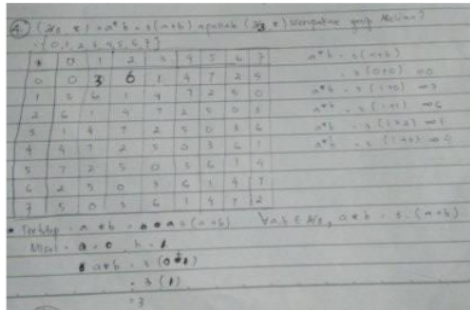 4. (Z8, *) = a * b = 3(a+b) apakah (Z8, *) merupakan grup Abelian?
= {0, 1, 2, 3, 4, 5, 6, 7}
* 0 1 2 3 4 5 6 7
0 0 3 6 1 4 7 2 5
1 3 6 1 4 7 2 5 0
2 6 1 4 7 2 5 0 3
3 1 4 7 2 5 0 3 6
4 4 7 2 5 0 3 6 1
5 7 2 5 0 3 6 1 4
6 2 5 0 3 6 1 4 7
7 5 0 3 6 1 4 7 2
a * b = 3(a+b)
= 3(0+0) = 0
a * b = 3(1+0) = 3
a * b = 3(1+1) = 6
a * b = 3(1+2) = 1
a * b = 3(1+3) = 4
• Tertutup = a * b = (a+b) ∀a,b ∈ Z8, a * b = 3.(a+b)
Misal = a = 0, b = 1
a * b = 3(0+1)
= 3(1)
= 3